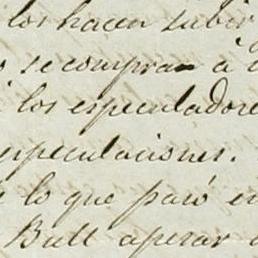 los hacen subir
se compran á
los especuladore
especulaciones.
lo que pasó en
Bull apesar